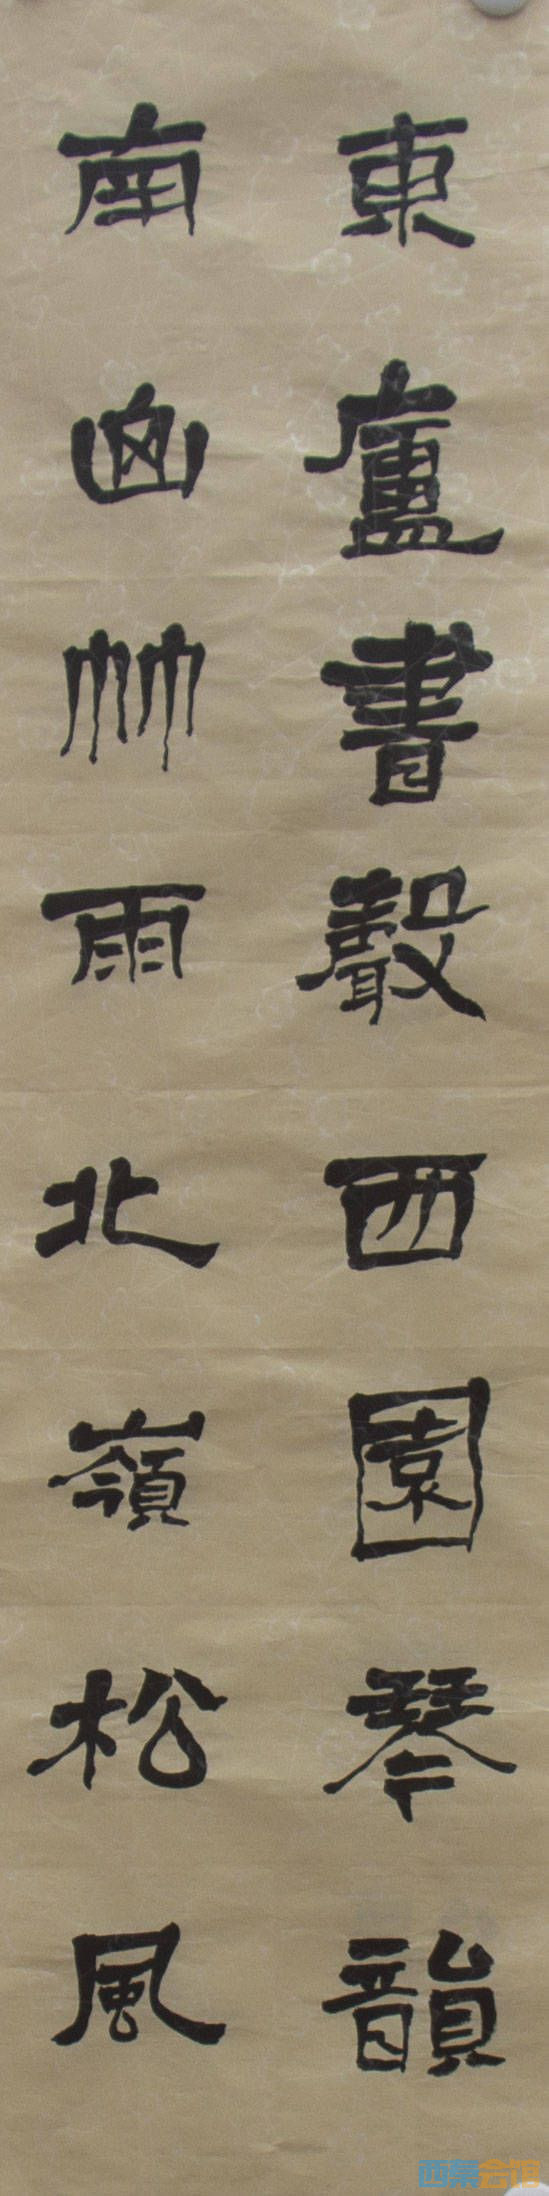 東廬書聲西園琴韻
南竹雨北嶺松風
会馆